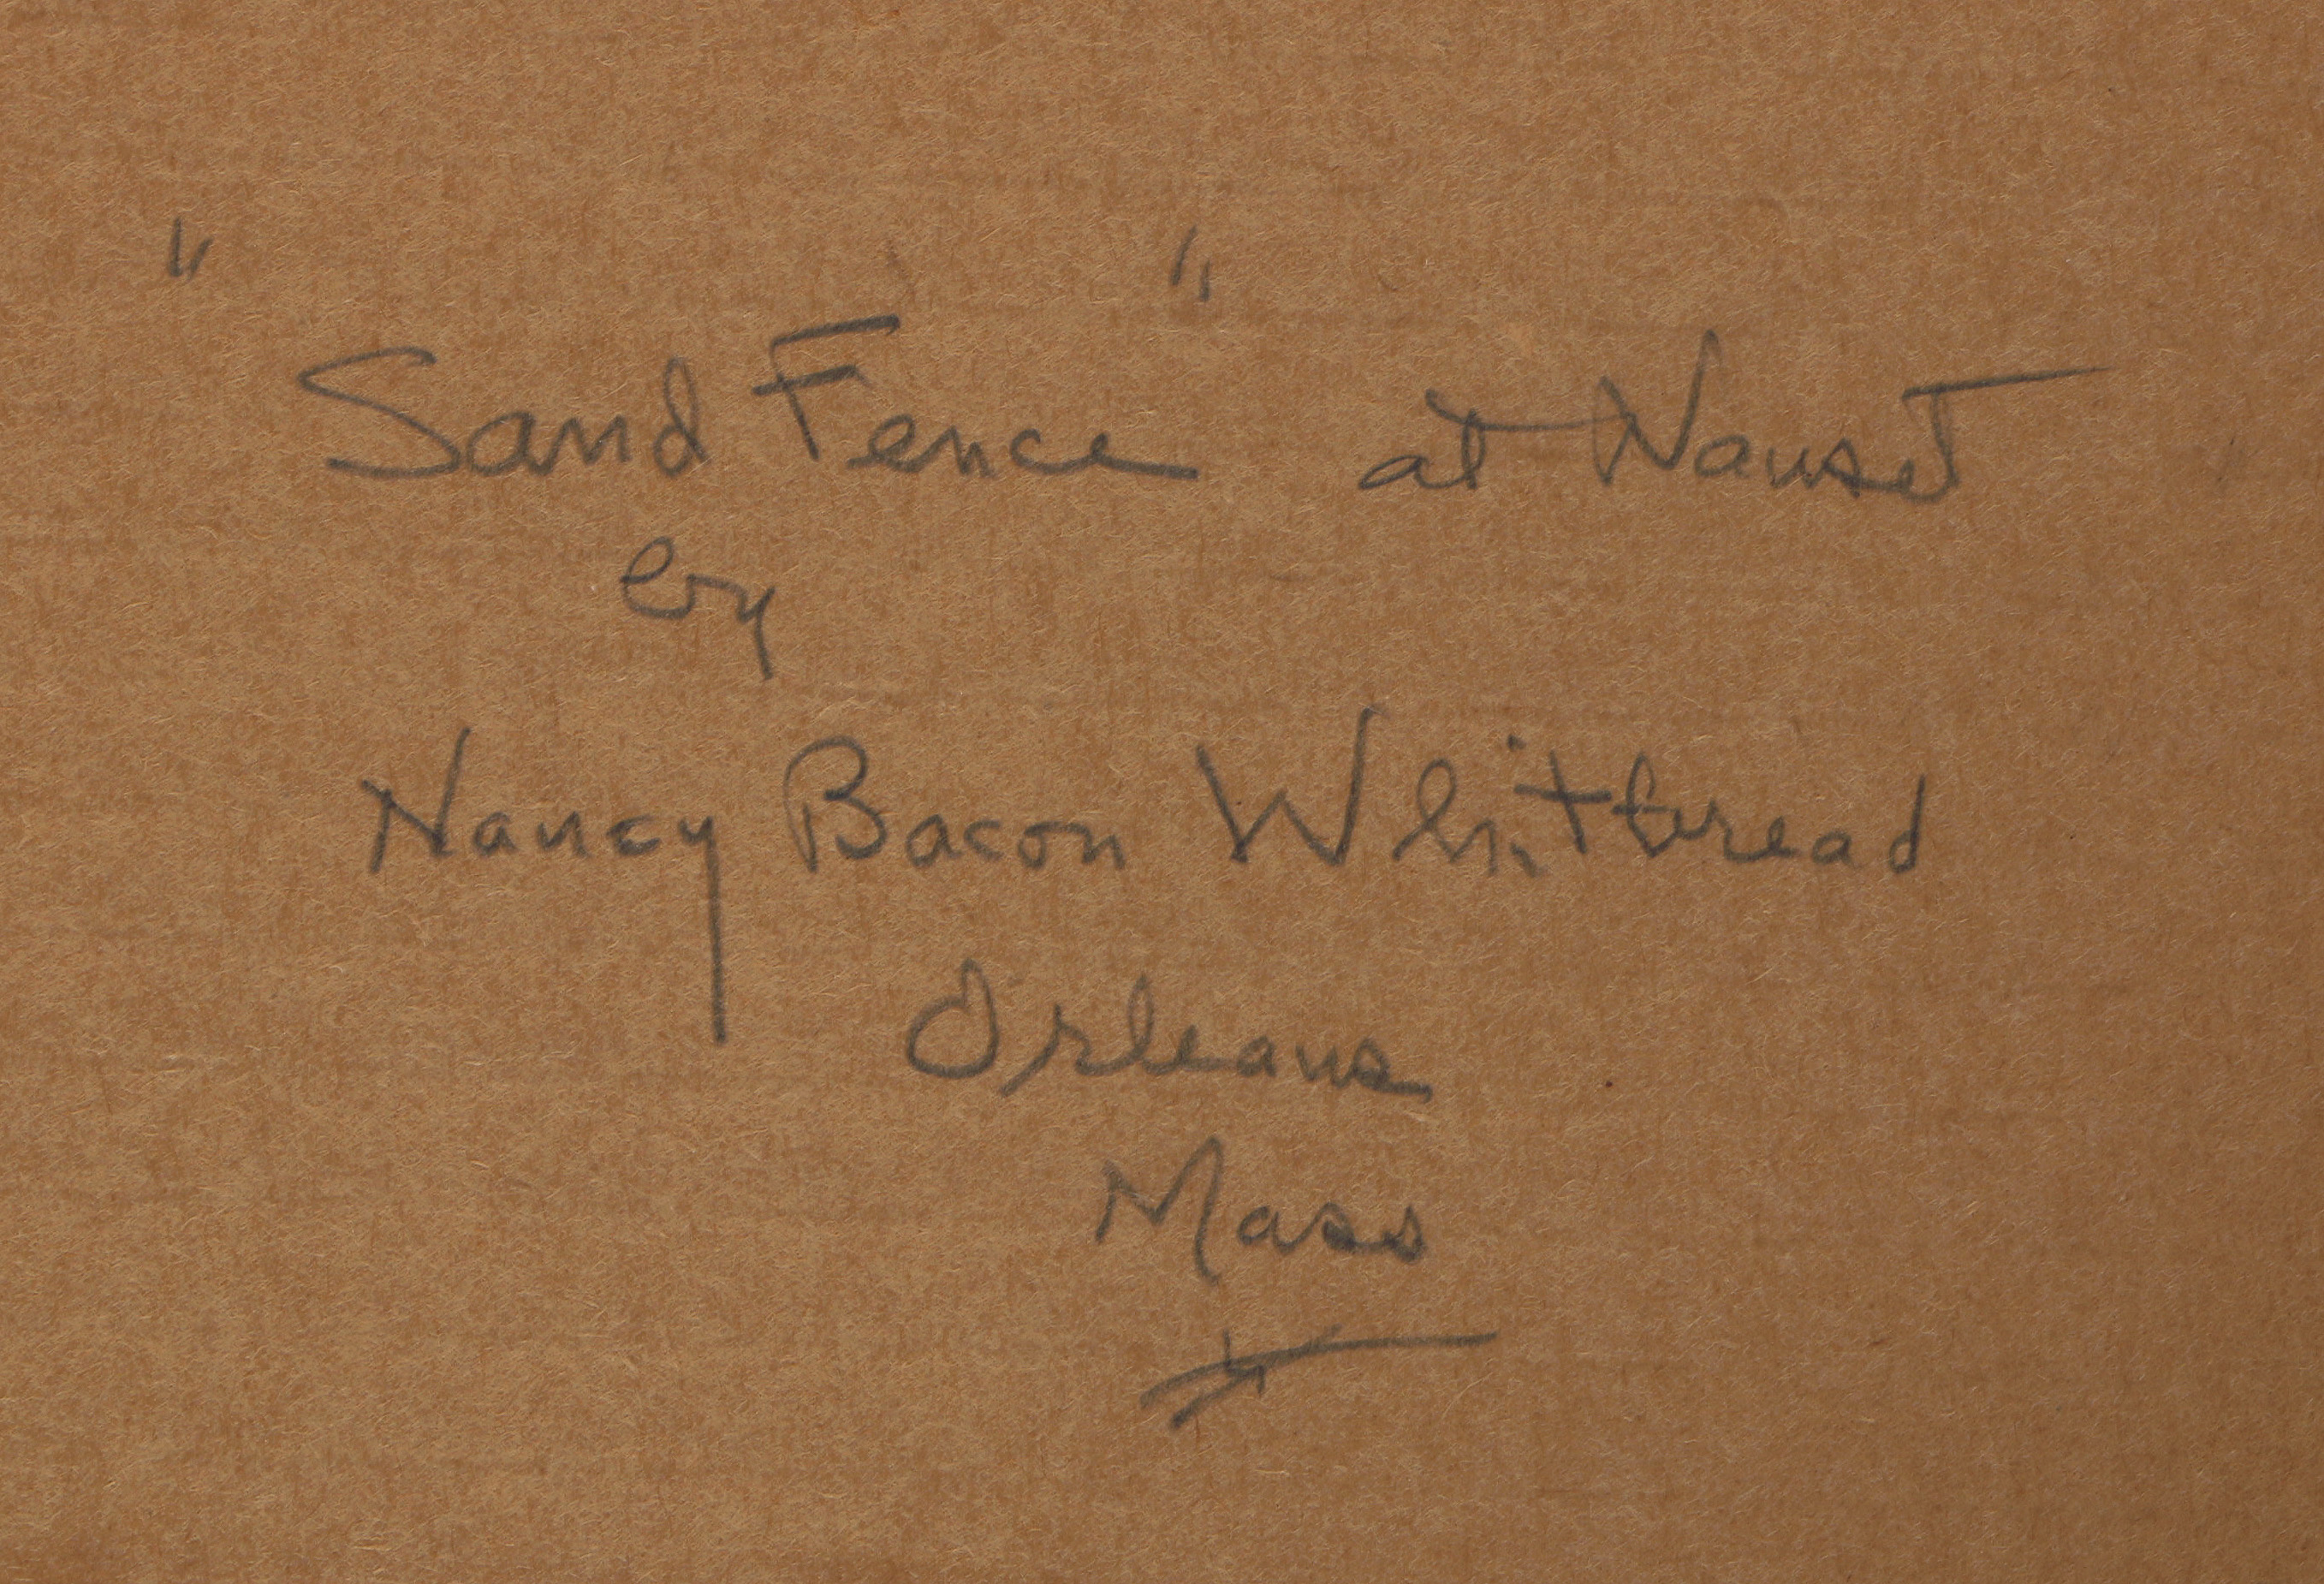 "Sand Fence" at Nauset
by
Nancy Bacon Whitbread
Orleans
Mass